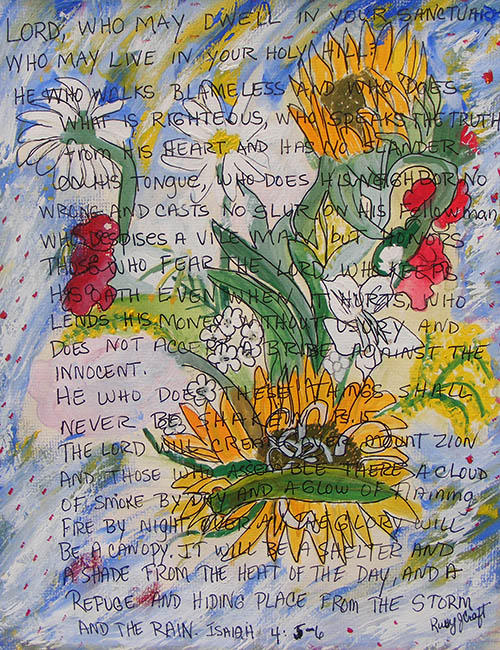 LORD, WHO MAY DWELL IN YOUR SANCTUARY
WHO MAY LIVE IN YOUR HOLY HILL?
HE WHO WALKS BLAMELESS AND WHO DOES
WHAT IS RIGHTEOUS, WHO SPEAKS THE TRUTH
From HIS HEART AND HAS NO SLANDER
ON HIS TONGUE, WHO DOES HIS NEIGHBOR NO
WRONG AND CASTS NO SLUR ON HIS Fellowman
WHO DESPISES A VILE MAN but HONORS
THOSE WHO FEAR THE LORD, WHO KEEPS
HIS OATH EVEN WHEN IT HURTS, WHO
LENDS HIS MONEY WITHOUT USURY AND
DOES NOT ACCEPT A BRIBE AGAINST THE
INNOCENT.
HE WHO DOES THESE THINGS SHALL
NEVER BE SHAKEN. PS. 15
THE LORD WILL CREATE OVER MOUNT ZION
AND THOSE WHO ASSEMBLE THERE A CLOUD
OF SMOKE BY DAY AND A GLOW OF Flaming
FIRE BY NIGHT OVER ALL THE GLORY WILL
BE A CANOPY. IT WILL BE A SHELTER AND
A SHADE FROM THE HEAT OF THE DAY, AND A
REFUGE AND HIDING PLACE FROM THE STORM
AND THE RAIN. ISAIAH 4: 5-6
Ruby J Craft